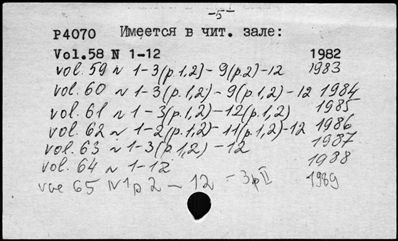 -5-
P4070 Имеется в чит. зале:
Vol.58 N 1-12 1982
vol. 59 N 1-3(p1,2)-9(p2)-12 1983
vol. 60 N 1-3(p.1,2)-9(p.1,2)-12 1984
vol. 61 N 1-3(p.1,2)-12(p.1,2) 1985
vol. 62 N 1-2(p.1,2)-11(p.1,2)-12 1986
vol. 63 N 1-3(p.1,2)-12 1987
vol. 64 N 1-12 1988
vol 65 N 1p2-12 -3pII 1989